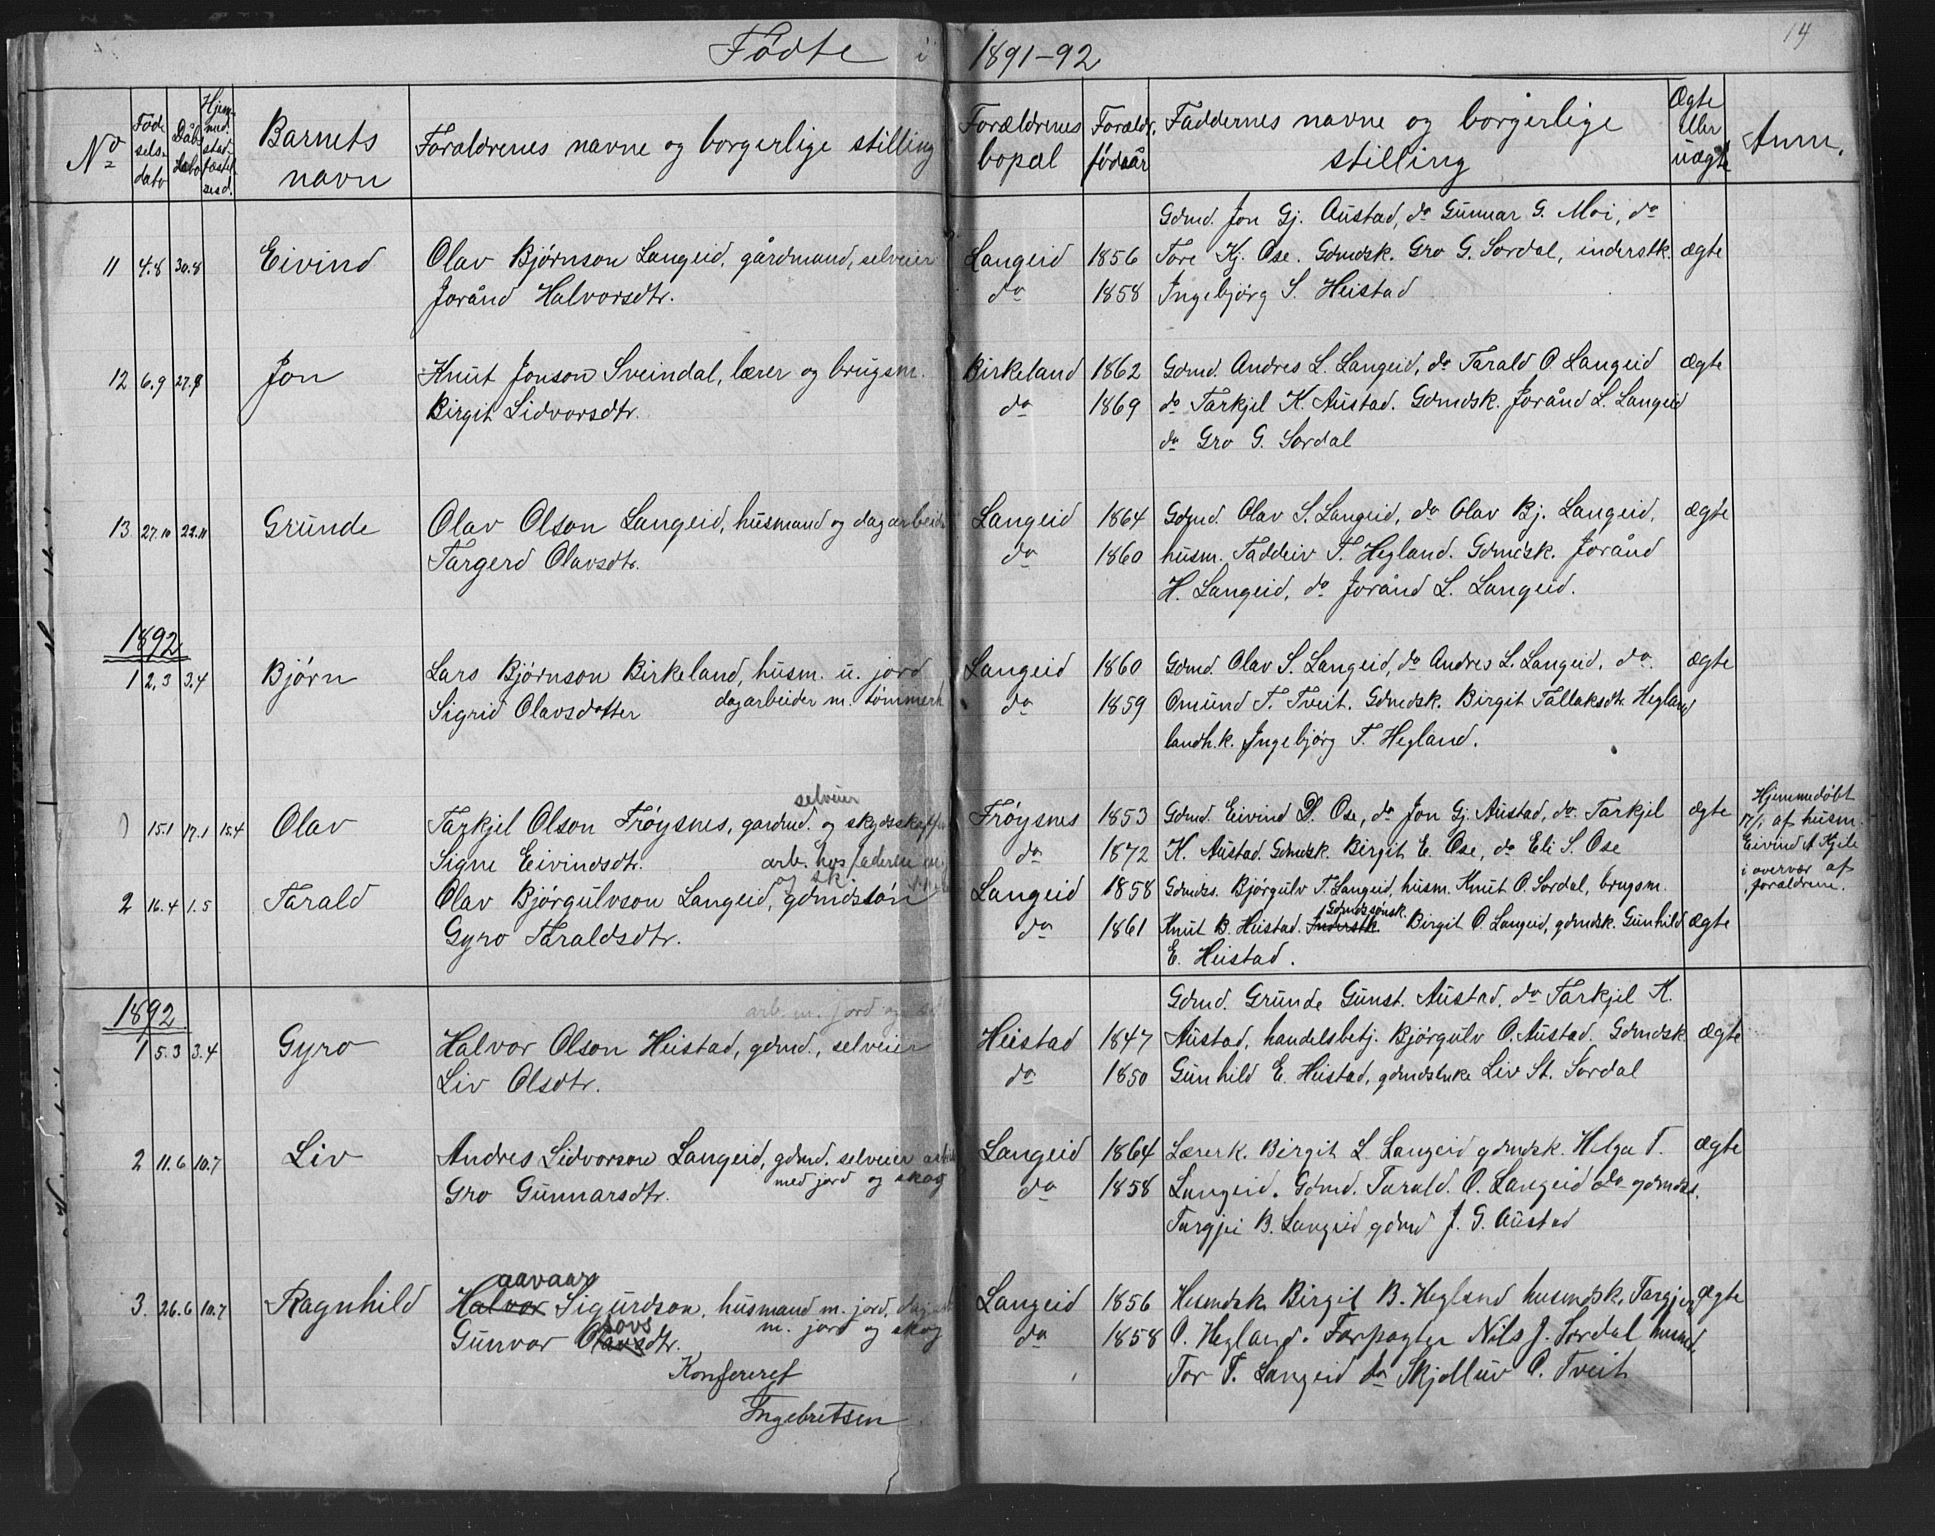 14
Fødte i 1891-92
No
Fødselsdato
Dåbsdato
Hjemmed. stadfæstelsesd.
Barnets navn
Forældrenes navne og borgerlige stilling
Forældrenes bopæl
Forældr. fødeår
Faddernes navne og borgerlige stilling
Ægte eller uægte
Anm.
Gdmd. Jon Gj. Austad, do Gunnar G. Moi, do
11 4.8 30.8 Eivind Olav Bjørnson Langeid, gårdmand, selveier Langeid 1856 Tore Kj. Ose. Gdmdsk. Gro G. Sordal, inderstk. ægte
Jorånd Halvorsdtr. do 1858 Ingebjørg S. Heistad
12 6.9 27.9 Jon Knut Jonson Sveindal, lærer og brugsm. Birkeland 1862 Gdmd. Andres L. Langeid, do Tarald O. Langeid ægte
Birgit Lidvorsdtr. do 1869 do Tarkjel K. Austad. Gdmdsk. Jorånd L. Langeid
do Gro G. Sordal
13 27.10 22.11 Grunde Olav Olson Langeid, husmand og dagarbeid Langeid 1864 Gdmd. Olav S. Langeid, do Olav Bj. Langeid, ægte
Targerd Olavsdtr. do 1860 husm. Taddeiv T. Hegland. Gdmdsk. Jorånd
H. Langeid, do Jorånd L. Langeid.
1892
1 2.3 3.4 Bjørn Lars Bjørnson Birkeland, husm. u. jord Langeid 1860 Gdmd. Olav S. Langeid, do Andres L. Langeid, do. ægte
Sigrid Olavsdatter dagarbeider m. tømmerh do 1859 Omund T. Tveit. Gdmdsk. Birgit Tallaksdtr. Hegland
landh.k. Ingebjørg T. Hegland.
selveier
) 15.1 17.1 15.4 Olav Tarkjel Olson Frøysnes, gardmd. og skydsskaffer Frøysnes 1853 Gdmd. Eivind D. Ose, do Jon Gj. Austad, do. Tarkjel ægte
Hjemmedøbt
17/1 af husm.
Eivind A Kjele
i overvær af
forældrene.
Signe Eivindsdtr. arb. hos faderen do 1872 K. Austad. Gdmdsk. Birgit E. Ose, do Eli S. Ose
og sk.
2 16.4 1.5 Tarald Olav Bjørgulvson Langeid, gdmdssøn Langeid 1858 Gdmds. Bjørgulv T. Langeid, husm. Knut O. Sordal, brugsm.
Gyro Taraldsdtr. do 1861 Knut B. Heistad. Inderstk. Gdmdssønsk. Birgit O. Langeid, gdmdsk. Gunhild ægte
E. Heistad.
1892
arb. m. jord og
Gdmd. Grunde Gunst. Austad, do Tarkjel K.
1 5.3 3.4 Gyro Halvor Olson Heistad, gdmd., selveier Heistad 1847 Austad, handelsbetj. Bjørgulv O. Austad. Gdmdsk ægte
Liv Olsdtr. do 1850 Gunhild E. Heistad, gdmdsenke Liv St. Sordal
2 11.6 10.7 Liv Andres Lidvorson Langeid, gdmd. selveier Langeid 1864 Lærerk. Birgit L Langeid gdmdsk. Helga T. ægte
med jord og skog
Gro Gunnarsdtr. do 1858 Langeid. Gdmd. Tarald. O. Langeid do gdmds.
Targjei B. Langeid gdmd J. G. Austad
aavaar
3. 26.6 10.7 Ragnhild Halvor Sigurdson, husmand m. jord, dag Langeid 1856 Husmdsk. Birgit B. Hegland husmdsk. Targjer ægte
m. jord og skog
Gunvor Olavsdtr. do 1858 O. Hegland. Forpagter Nils J. Sordal husmd.
Tor T. Langeid do Skjolluv O. Tveit
Konfereret
Ingebretsen